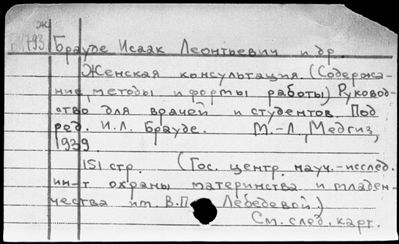 Ж
193
Брауде Исаак Леонтьевич и др.
Женская консультация. (Содержа-
ние, методы и формы работы) Руковод-
ство для врачей и студентов. Под
ред. И.Л. Брауде. М.-Л., Медгиз,
1939.
151 стр. (Гос. центр. науч.-исслед.
ин-т охраны материнства и младен-
чества им. В.П. Лебедевой.)
См. след. карт.